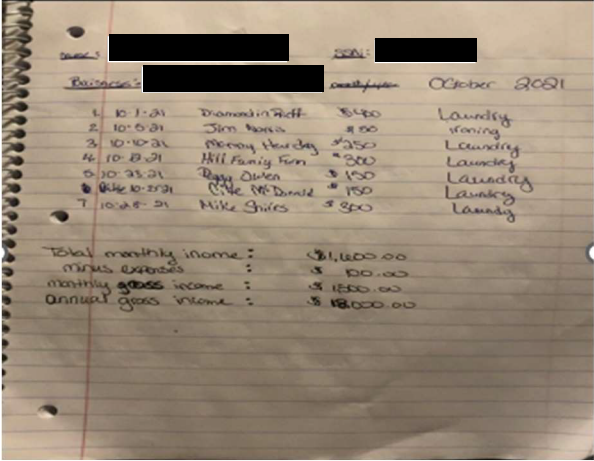 Name: SSN:
Business: October 2021
1 10-1-21 Diamond in Ruff $400 Laundry
2 10-5-21 Jim $50 Ironing
3 10-10-21 $250 Laundry
4 Hill Family Farm $300 Laundry
5 10-23-21 Peggy Owen $150 Laundry
6 10-25-21 McDonald $150 Laundry
7 10-28-21 Mike $300 Laundy
Total monthly inome : $1,600.00
minus expenses : $ 100.00
monthly gross income : $ 1500.00
annual gross income : $ 18,000.00